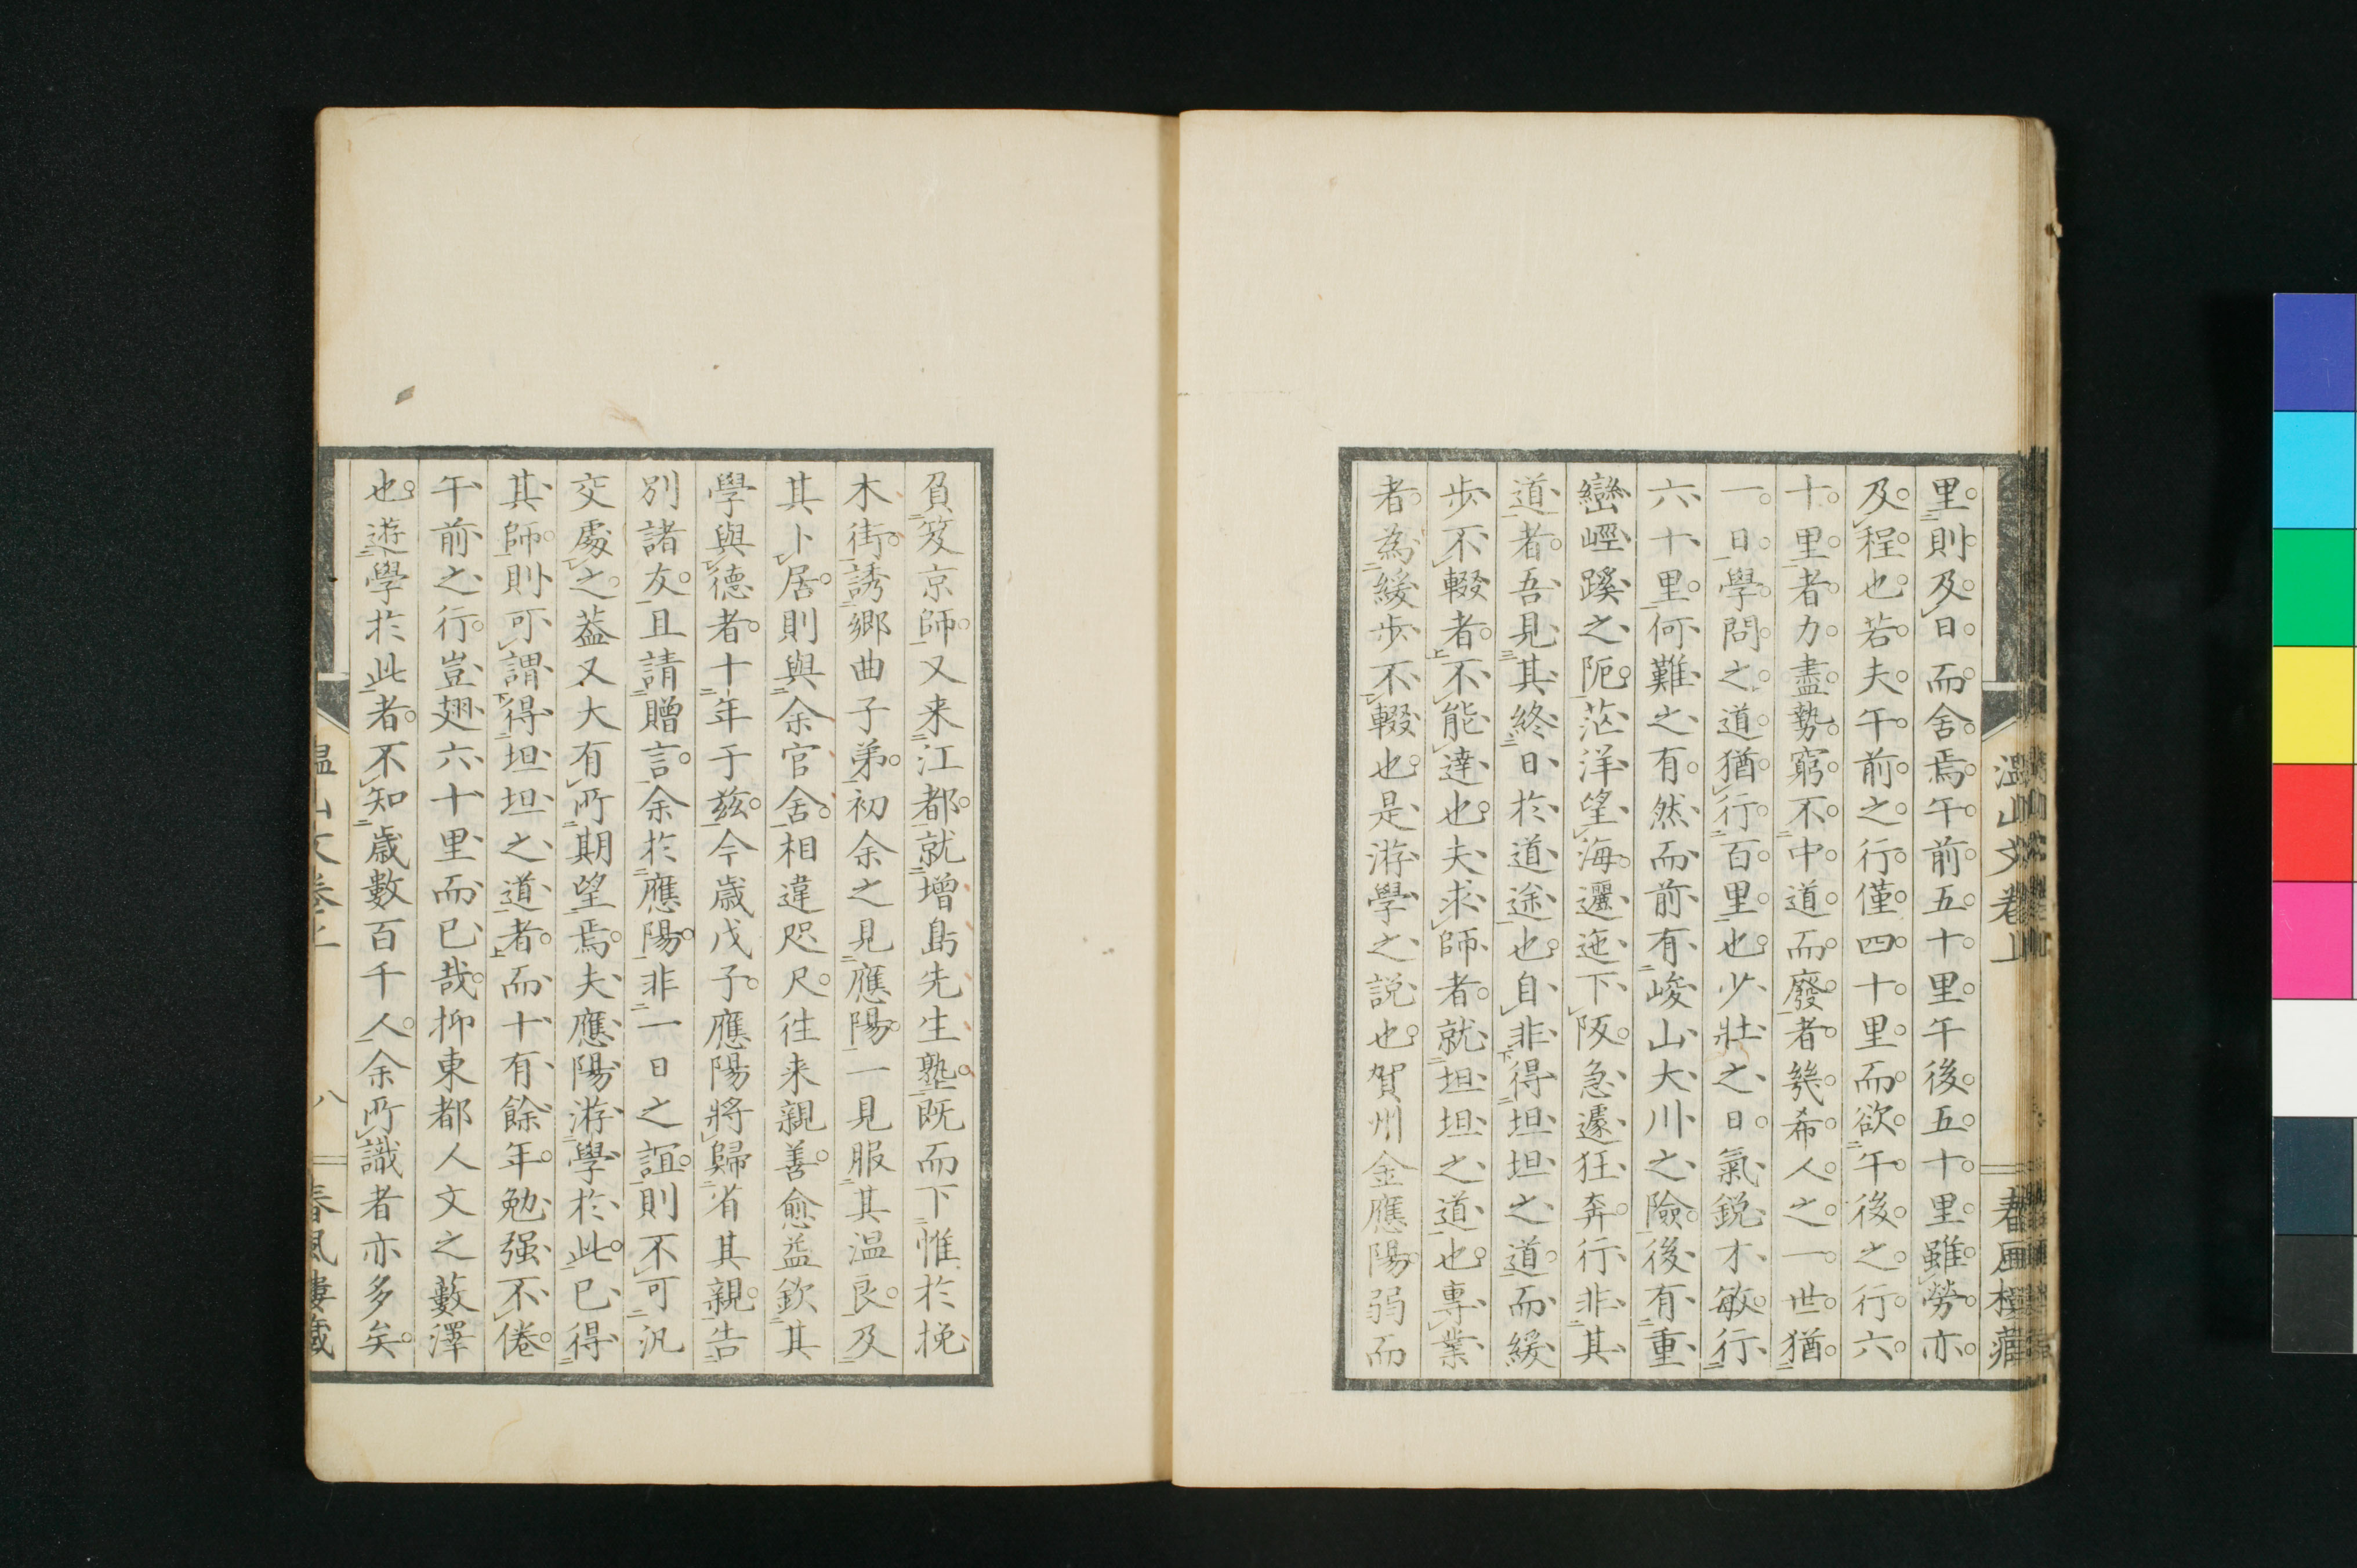 里則及日而舍焉午前五十里午後五十里雖勞亦
及程也若夫午前之行僅四十里而欲午後之行六
十里者力盡勢窮不中道而廢者幾希人之一世猶
一日學問之道猶行百里也少壯之日氣銳才敏行
六十里何難之有然而前有峻山大川之險後有重
巒嶇蹊之阨茫洋望海邐迤下阪急遽狂奔行非其
道者吾見其終日於道途也自非得坦坦之道而緩
歩不輟者不能達也夫求師者就坦坦之道也專業
者為緩歩不輟也是游學之說也賀州金應陽弱而
温山文卷上
負笈京師又来江都就增島先生塾既而下帷於挽
木街誘鄉曲子弟初余之見應陽一見服其温良及
其卜居則與余官舍相違咫尺往来親善愈益欽其
學與德者十年于兹今歲戊子應陽將歸省其親告
別諸友且請贈言余於應陽非一日之誼則不可汎
交處之葢又大有所期望焉夫應陽游學於此已得
其師則可謂得坦坦之道者而十有餘年勉强不倦
午前之行豈翅六十里而已哉抑東都人文之藪澤
也遊學於此者不知歲數百千人余所識者亦多矣
温山文卷上 八 春風樓藏